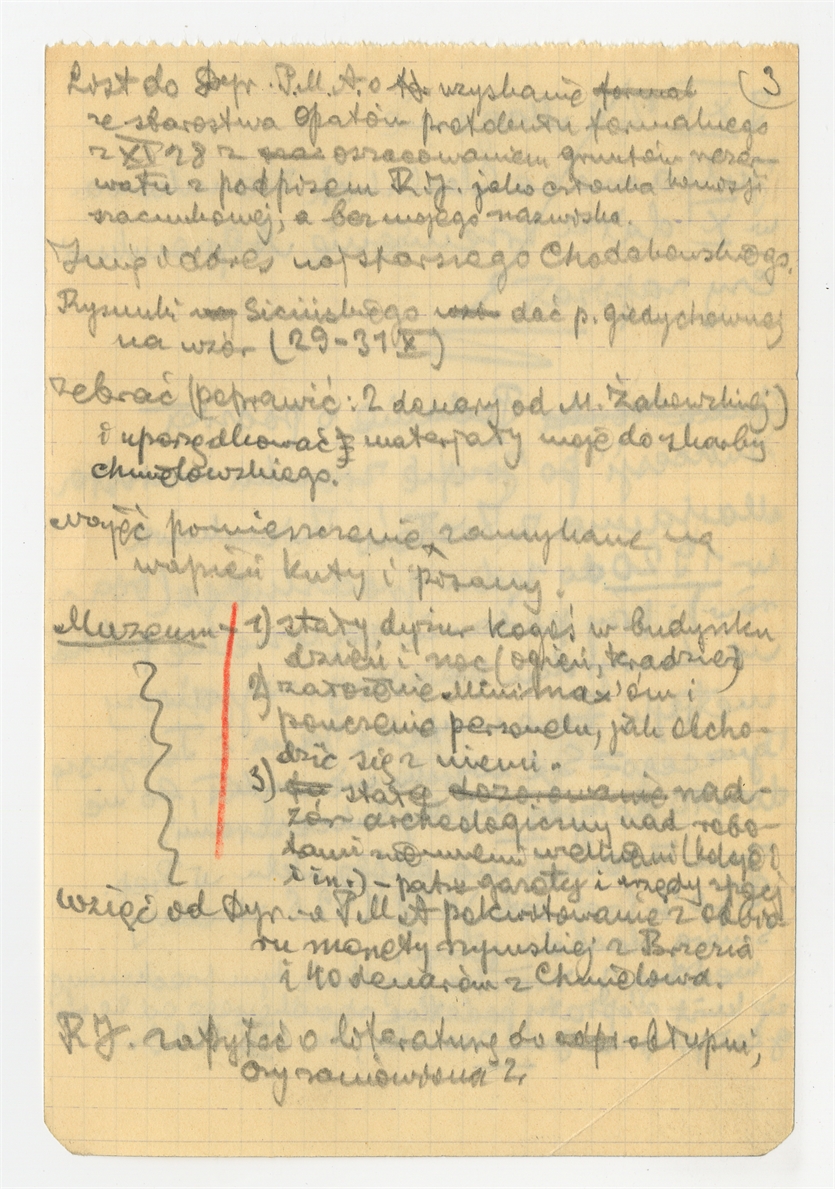 3
List do Dyr. P.M.A. o uzyskanie formal
ze starostwa Opatów protokułu formalnego
z XI 28 z oszacowaniem gruntów rezer-
watu z podpisem R.J. jako członka komisji
szacunkowej, a bez mojego nazwiska.
Imię i adres najstarszego Chodakowskiego.
Rysunki Sicińskiego dać p. Giedychownej
na wzór (29-31 X)
zebrać (poprawić: 2 denary od M. Żakowskiej)
i uporządkować materjały moje do skarbu
chmielowskiego.
Zająć pomieszczenie, zamykane na
wapień kuty i pisany.
Muzeum - 1) stały dyżur kogoś w budynku
dzień i noc (ogień, kradzież)
2) założenie Minimax'ów i
pouczenie personelu, jak obcho-
dzić się z niemi.
3) stały dozorowanie nad-
zór archeologiczny nad robo-
tami ziemnemi wielkiemi (Gdynia
i in.) - patrz gazoty i urzędy
wziąć od Dyr.-a P.M.A pokwitowanie z odbio-
ru monety rzymskiej z Brzezia
i 40 denarów z Chmielowa.
R.J. zapytać o literaturę do obłupni,
czy zamówiona?